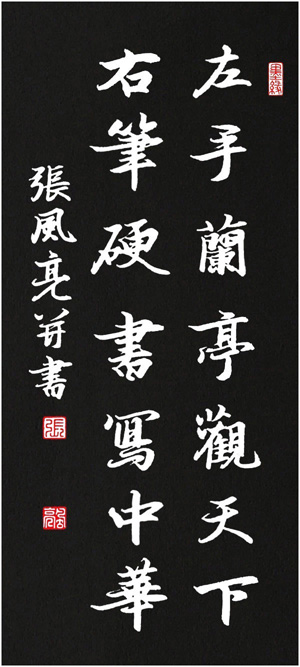 左手蘭亭觀天下
右筆硬書寫中華
張風亮并書
張